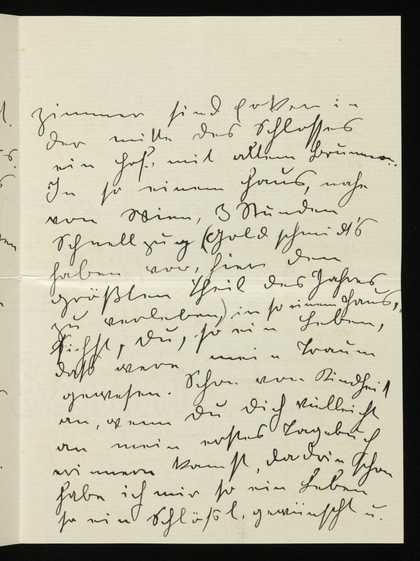 zimmer sind
der mitte des Schlosses
ein Hof, mit altem Brunnen.
In so einem Haus, nahe
von Wien, 3 Stunden
Schnellzug (Goldschmidt's
haben vor, hier den
größten Theil des Jahres
zu verleben,) in so einem Haus,
siehst, Du, so ein Leben,
das wäre mein Traum
gewesen. Schon von Kindheit
an, wenn Du Dich vielleicht
an mein erstes Tagebuch
erinnern kannst, da drin schon
habe ich mir so ein Leben
so ein Schlößl, gewünscht u.